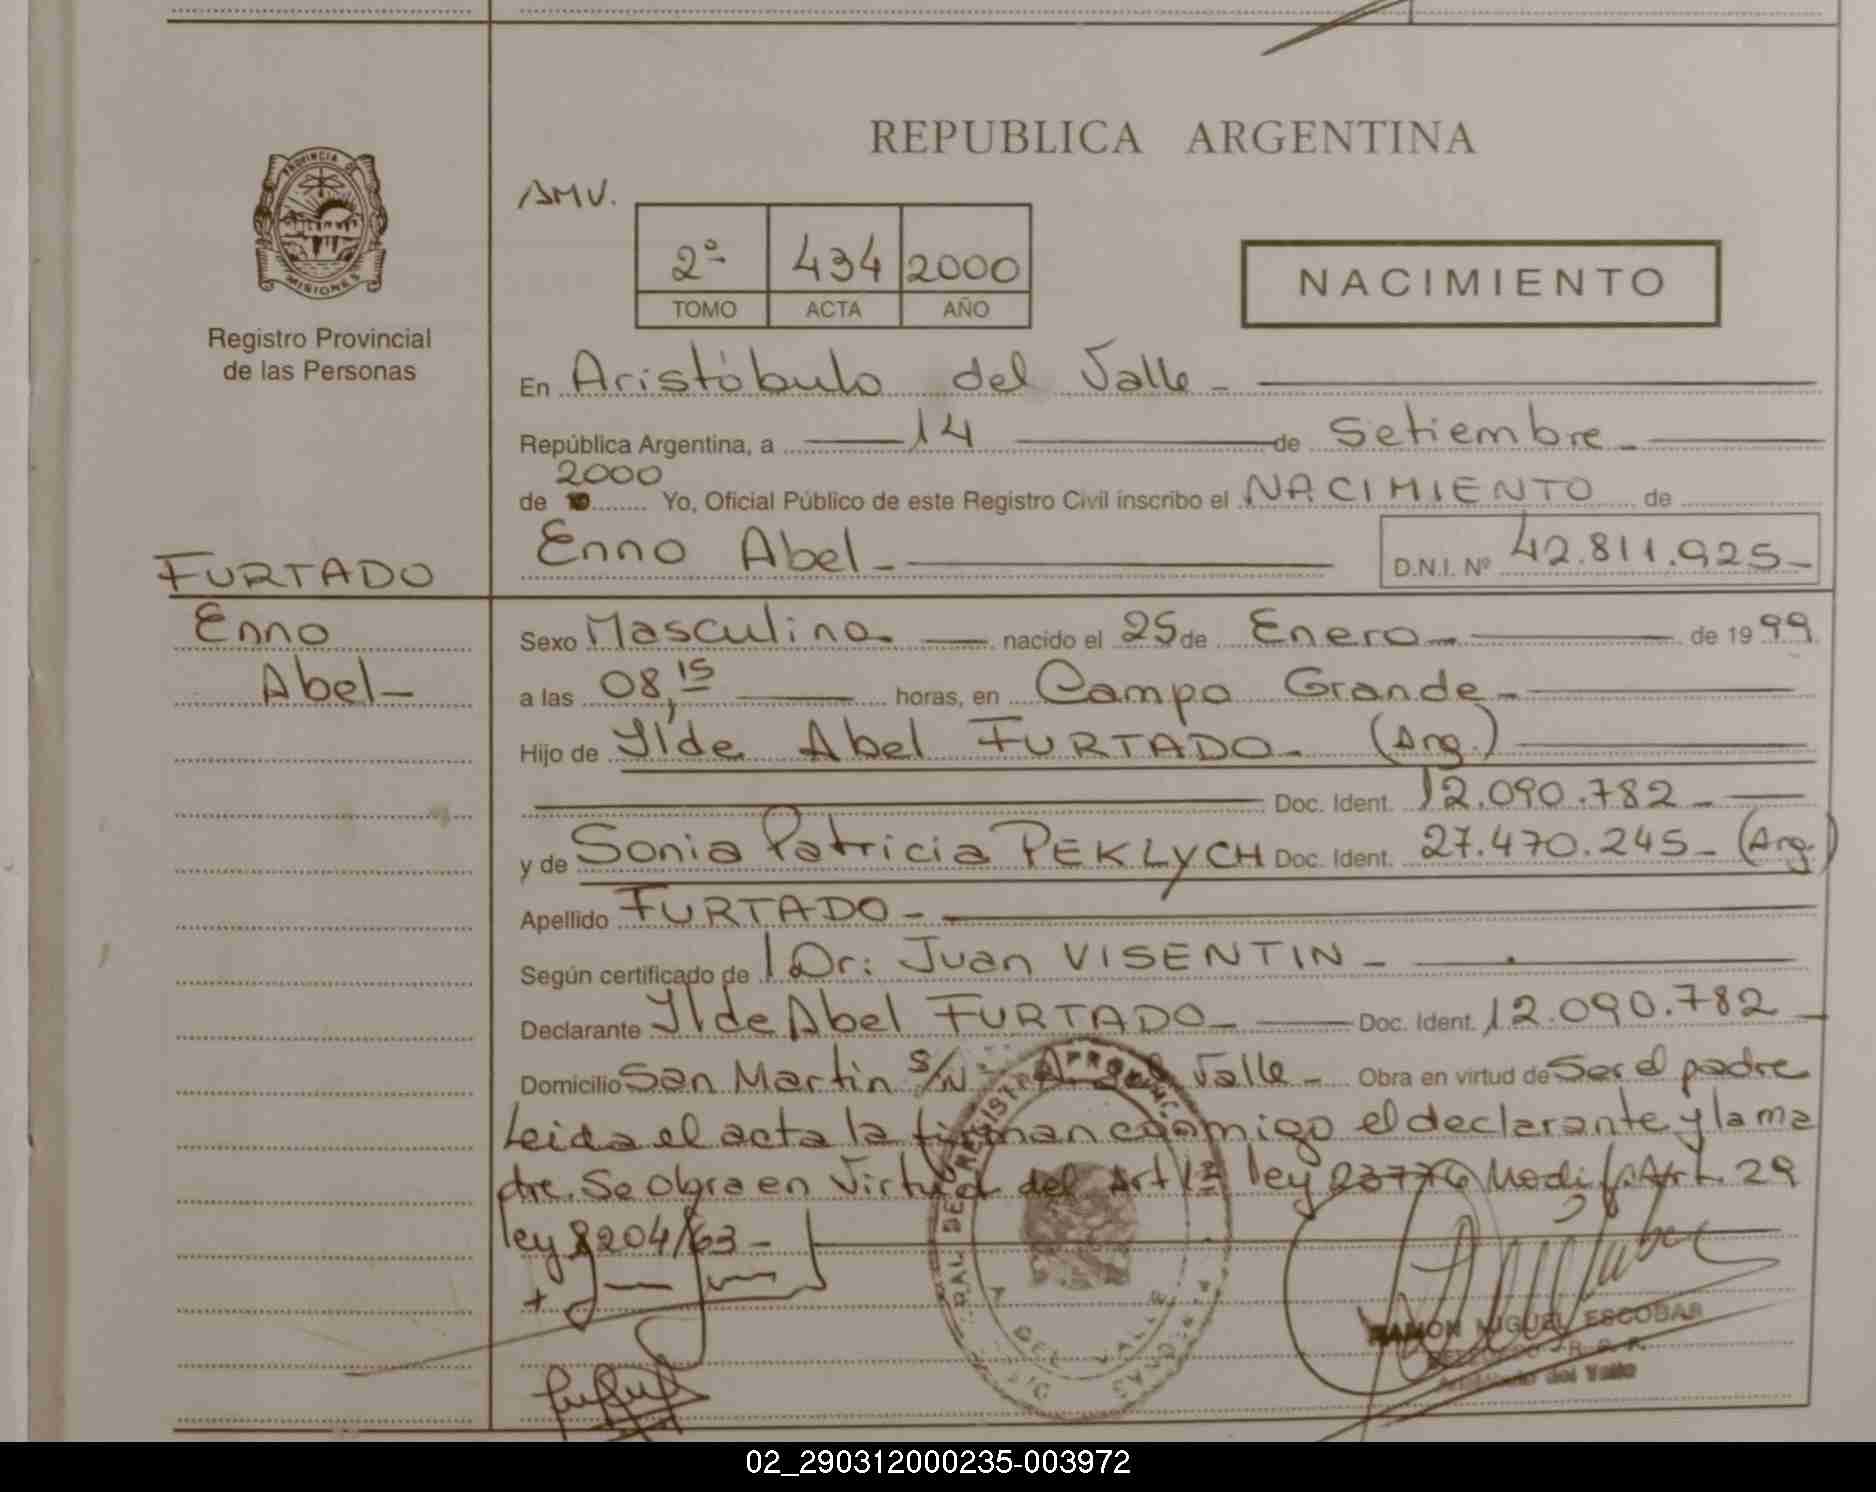 REPUBLICA ARGENTINA
PROVINCIA DE
MISIONES
Registro Provincial
de las Personas
AMV.
2º 434 2000
TOMO ACTA AÑO
NACIMIENTO
En Aristóbulo del Valle -
República Argentina, a 14 de Setiembre -
2000
de Yo, Oficial Público de este Registro Civil inscribo el NACIMIENTO de
Enno Abel - D.N.I. Nº 42.811.925 -
FURTADO
Enno
Abel -
Sexo Masculino nacido el 25 de Enero - de 1999
a las 08,15 horas, en Campo Grande -
Hijo de Ylde Abel FURTADO - (Arg.)
Doc. Ident. 12.090.782 -
y de Sonia Patricia PEKLYCH Doc. Ident. 27.470.245 - (Arg.)
Apellido FURTADO -
Según certificado de Dr: Juan VISENTIN -
Declarante Ylde Abel FURTADO - Doc. Ident. 12.090.782 -
Domicilio San Martin S/Nº Valle - Obra en virtud de Ser el padre
Leida el acta la firman conmigo el declarante y la ma
dre. Se obra en Virtud del Art 1º ley 23776 Modif. Art. 29
ley 8204/63 -
RAMON MIGUEL ESCOBAR
Aristóbulo del Valle
02_290312000235-003972